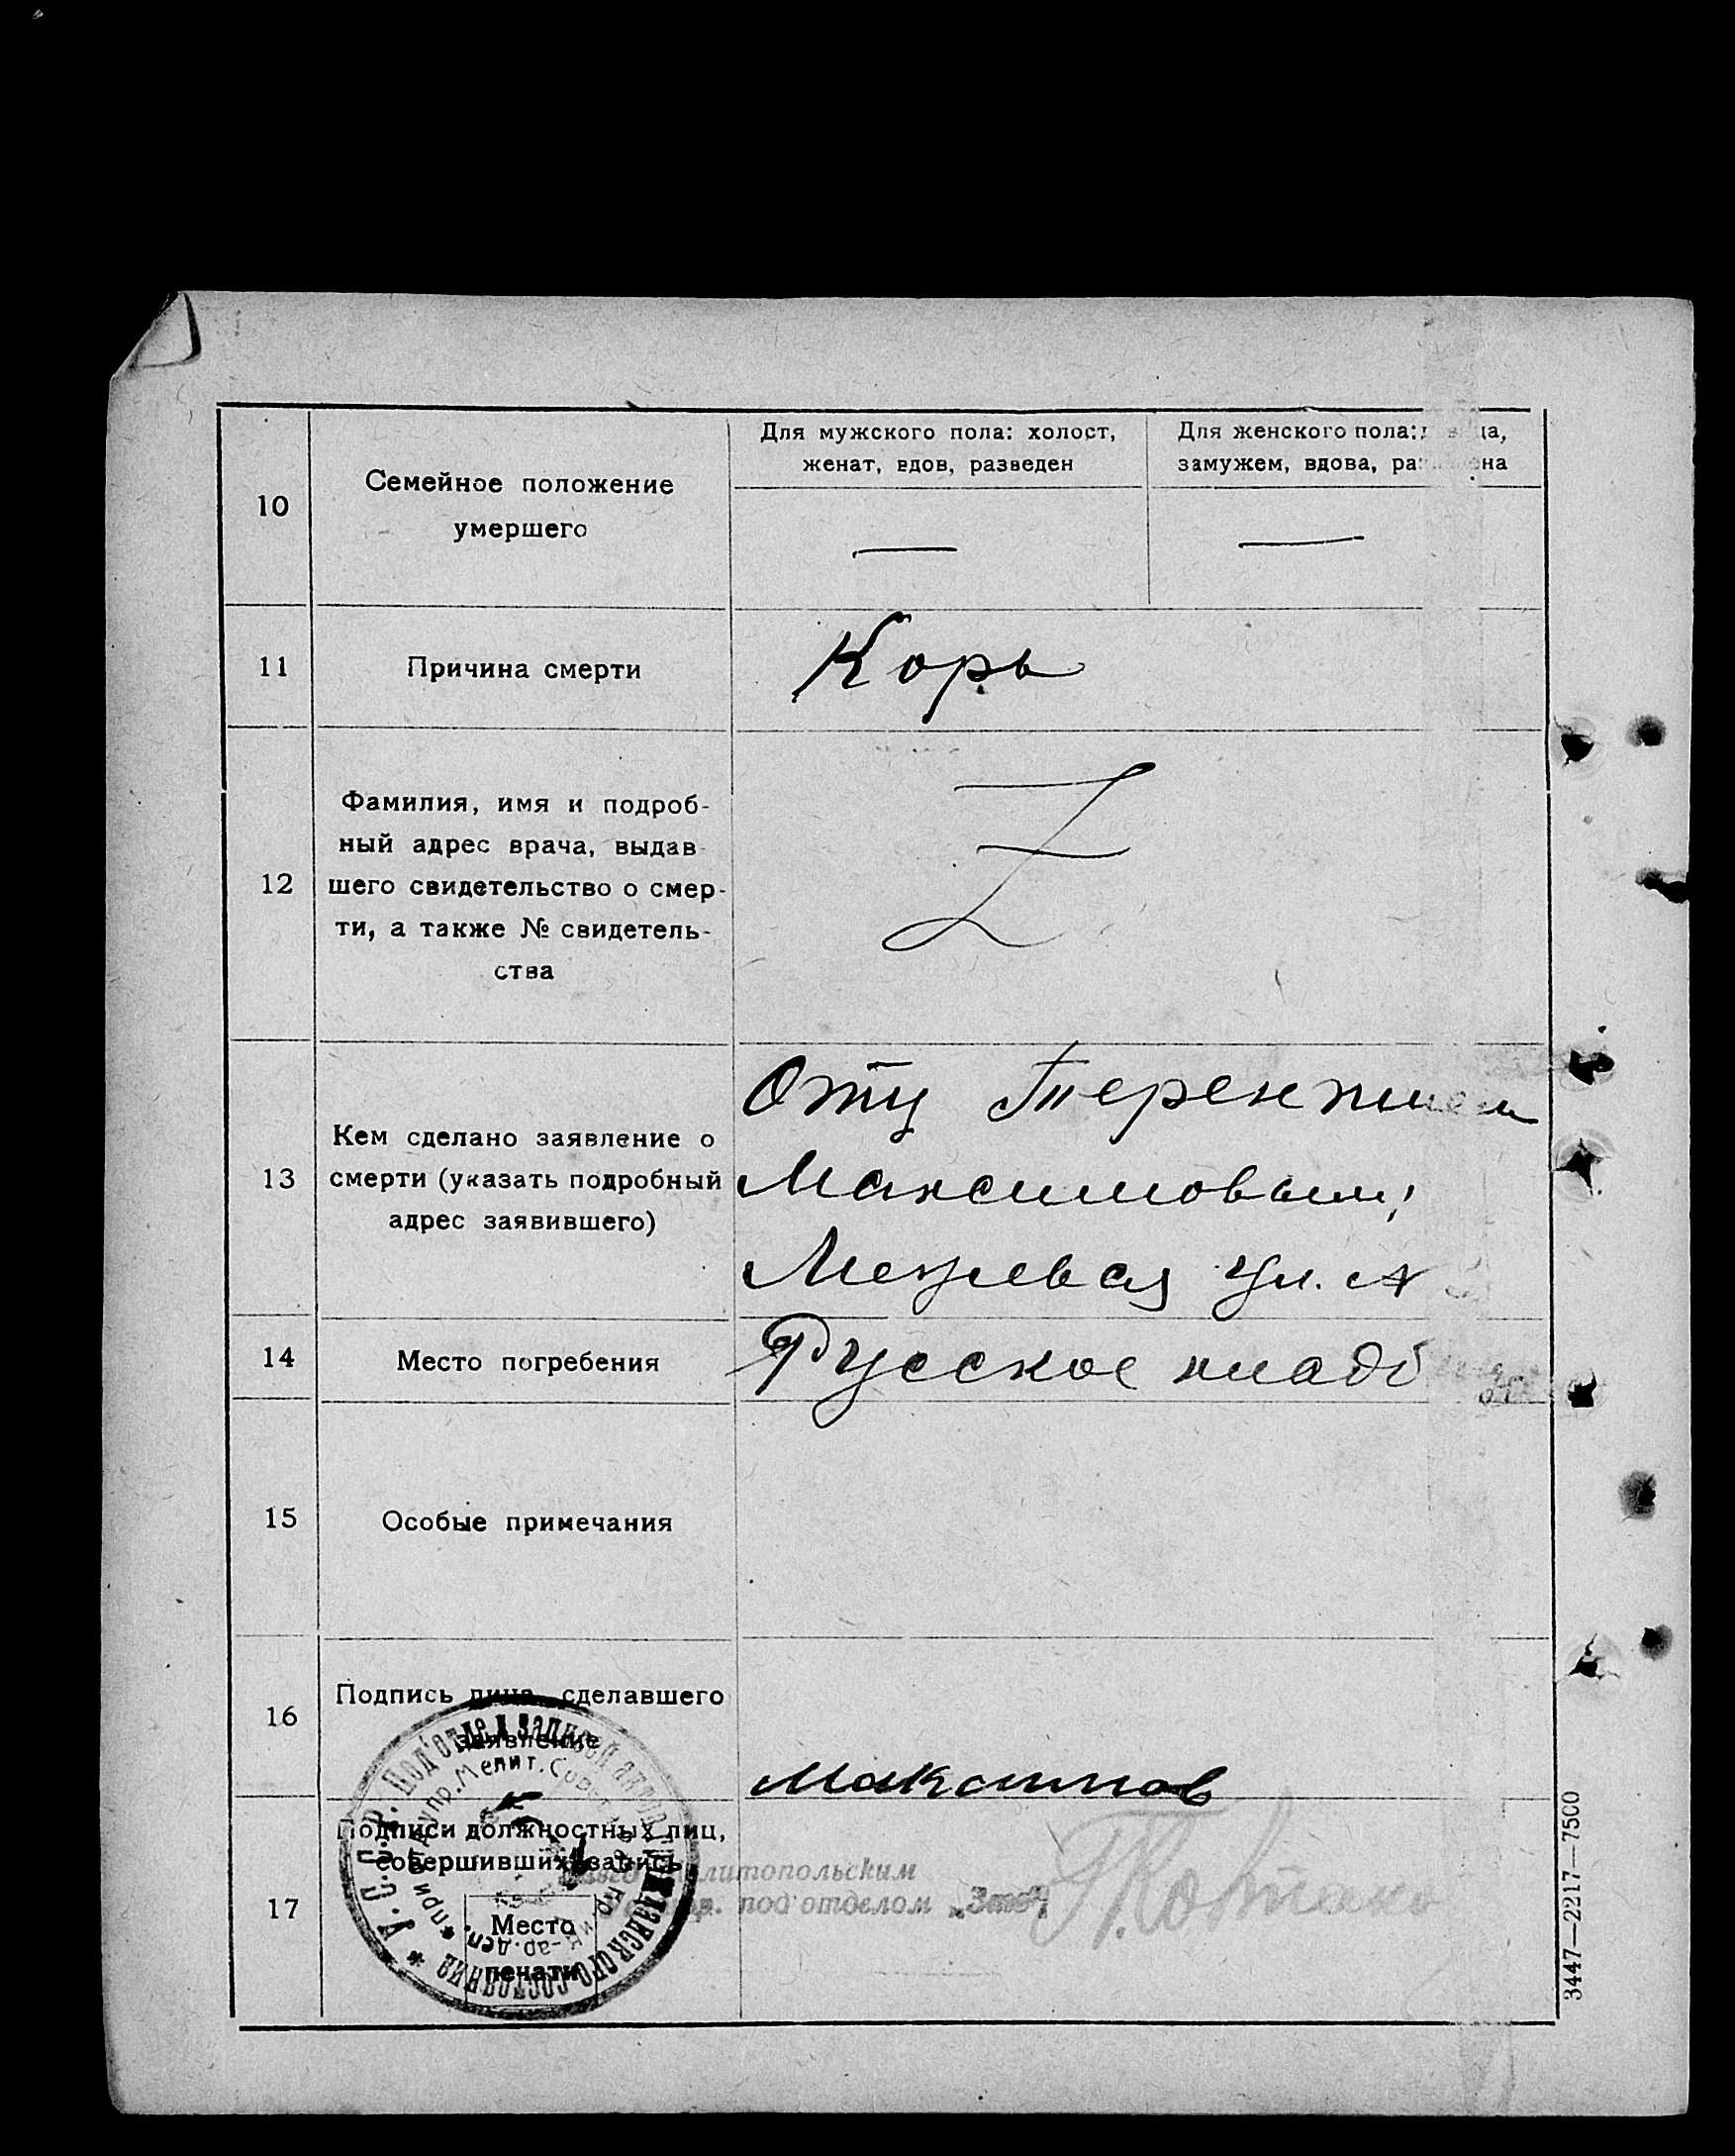 10
Семейное положение
умершего
Для мужского пола: холост,
женат, вдов, разведен
Для женского пола:
замужем, вдова,
11
Причина смерти
Корь
12
Фамилия, имя и подроб-
ный адрес врача, выдав
шего свидетельство о смер-
ти, а также № свидетель-
ства
13
Кем сделано заявление о
смерти (указать подробный
адрес заявившего)
Отц Терентием
Максимовым,
Межевая ул. №
14
Место погребения
Русское кладб
15
Особые примечания
16
Подпись лица, сделавшего
заявление
Максимов
17
Подписи должностных лиц,
совершивших запись
Место
печати
У.С.С.Р. Под'отдел записи актов гражданского состояния
литопольским
под'отделом „Загс“
3447—2217—7500